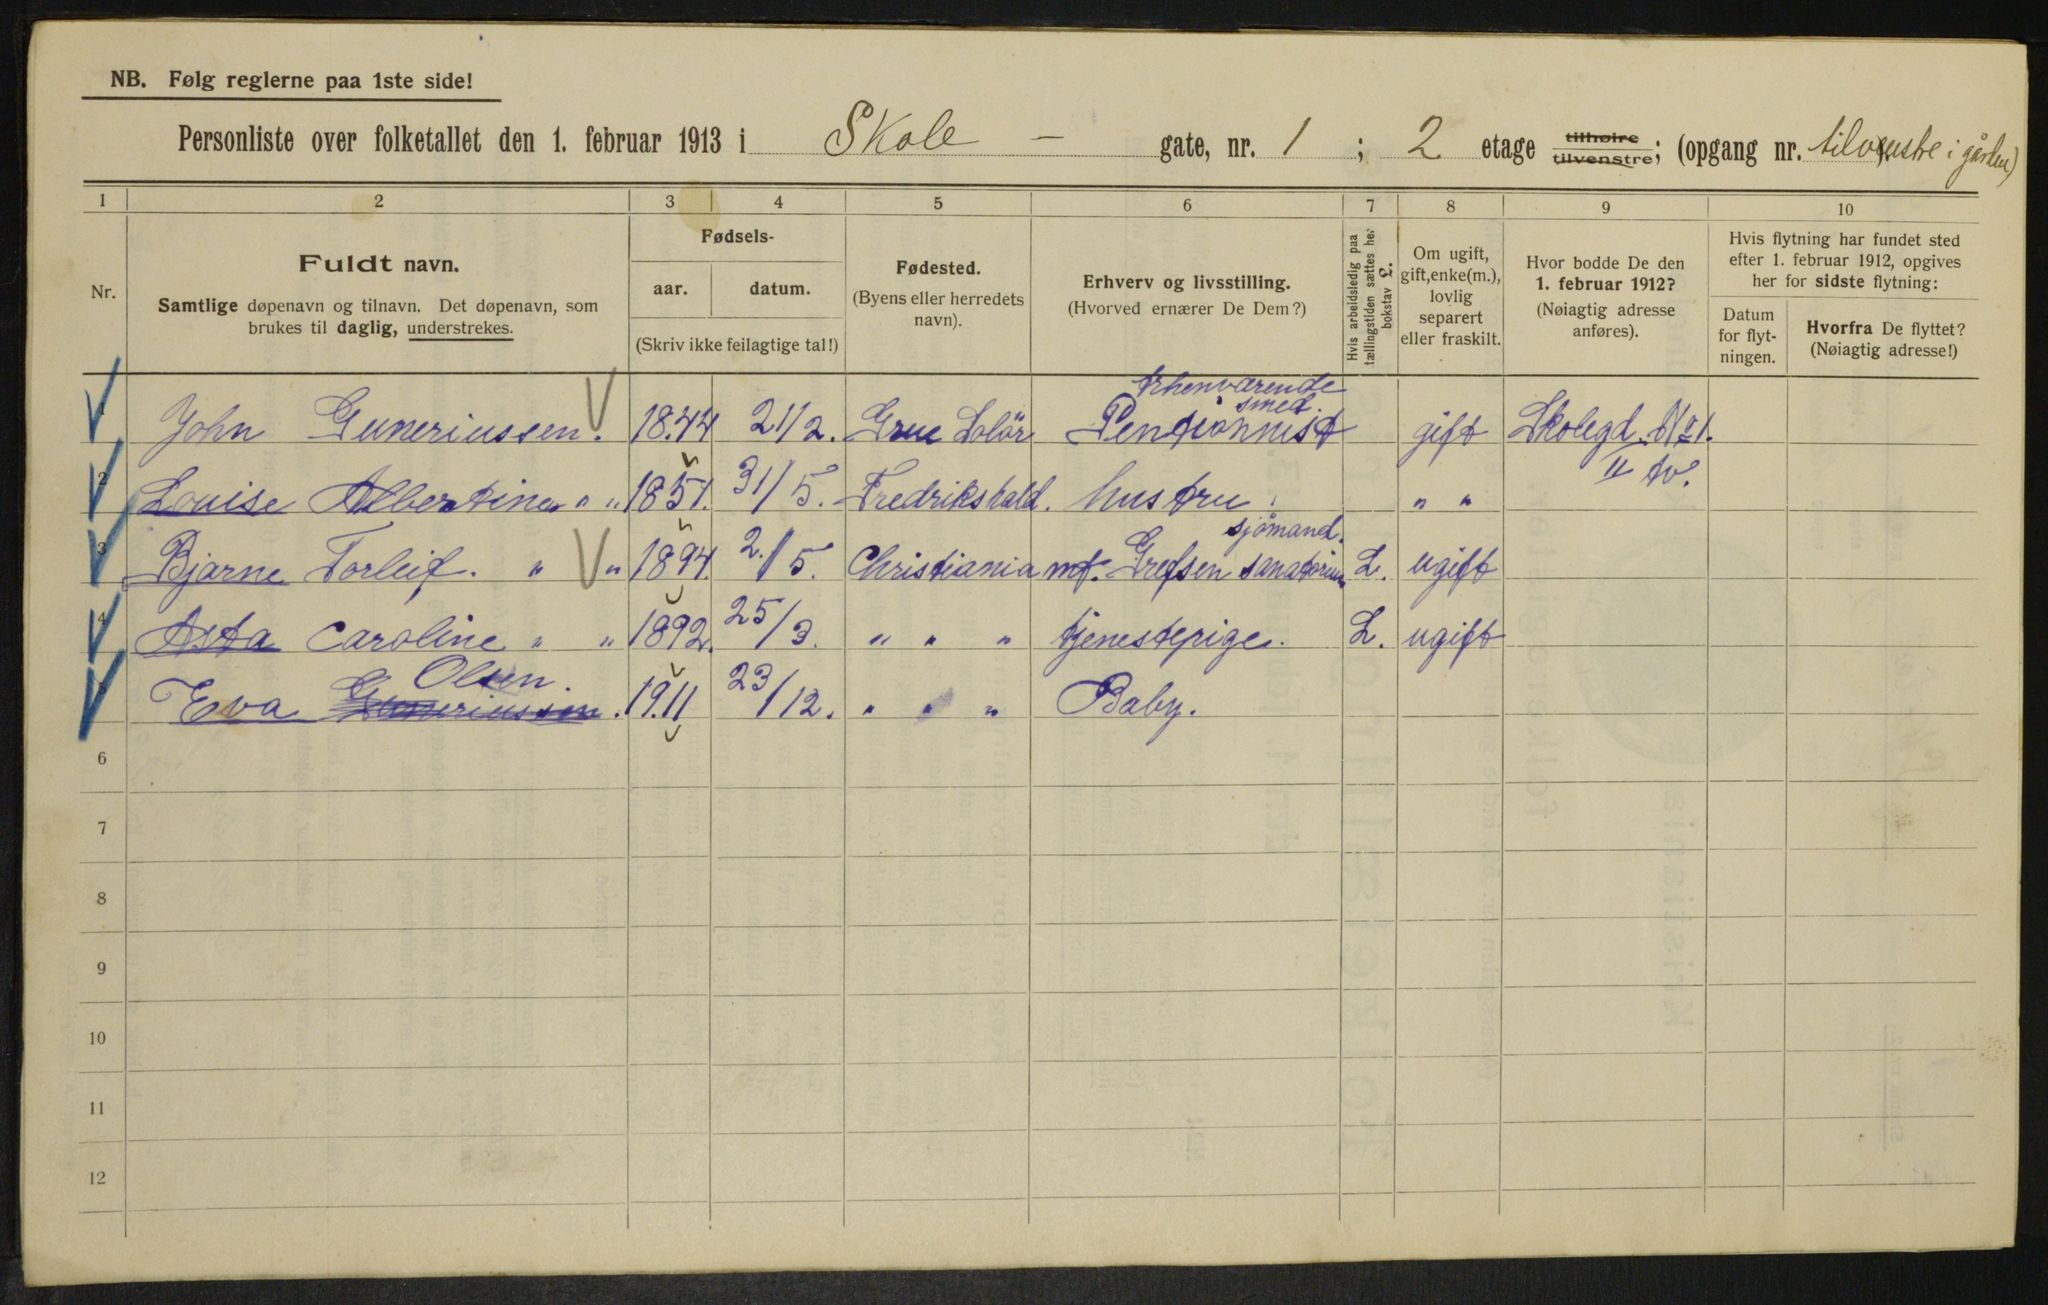 NB. Følg reglerne paa 1ste side!
Personliste over folketallet den 1. februar 1913 i Skole - gate, nr. 1 ; 2 etage tilhøire tilvenstre; (opgang nr. tilvenstre i gården)
1 2 3 4 5 6 7 8 9 10
Nr.
Fuldt navn.
Samtlige døpenavn og tilnavn. Det døpenavn, som
brukes til daglig, understrekes.
Fødsels-
aar. datum.
(Skriv ikke feilagtige tal!)
Fødested.
(Byens eller herredets
navn).
Erhverv og livsstilling.
(Hvorved ernærer De Dem?)
Hvis arbeidsledig paa
tællingstiden sættes her
bokstav L.
Om ugift,
gift, enke(m.),
lovlig
separert
eller fraskilt.
Hvor bodde De den
1. februar 1912?
(Nøiagtig adresse
anføres).
Hvis flytning har fundet sted
efter 1. februar 1912, opgives
her for sidste flytning:
Datum
for flyt-
ningen.
Hvorfra De flyttet?
(Nøiagtig adresse!)
forhenværende
smed.
1 John Guneriussen. 1844 21/2. Grue Solör Pentionnist gift Skolegd. No 1.
II tv.
2 Louise Albertine „ „ 1851. 31/5. Fredrikshald. hustru. „ „
sjömand.
3 Bjarne Torleif. „ „ 1894. 2/5. Christiania mf. Grefsen sanatorium L. ugift
4 Asta Caroline „ „ 1892. 25/3. „ „ „ tjenestepige. L. ugift
Olsen.
5 Eva Guneriussen. 1911 23/12. „ „ „ Baby.
6
7
8
9
10
11
12